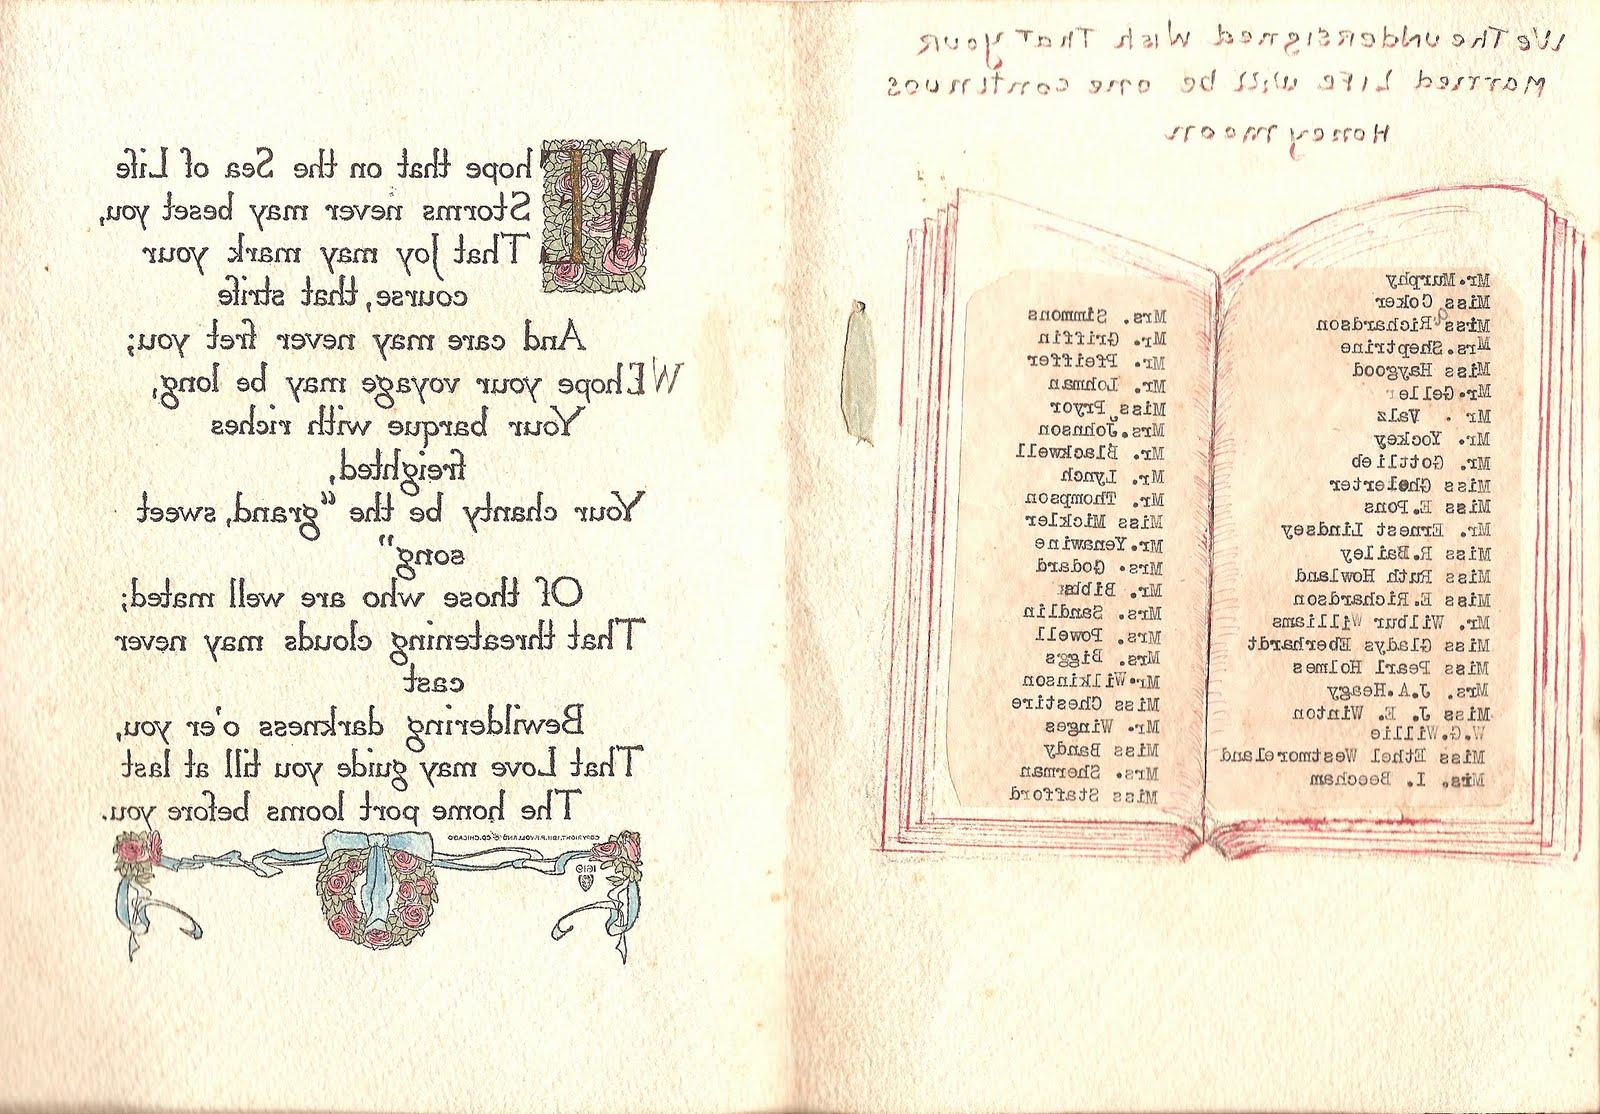 We The undersigned Wish That your
Married Life will be one continuos
Honeymoon
Mr.Murphy
Miss Coker
Miss Richardson
Mrs.Sheptrine
Miss Haygood
Mr.Geller
Mr . Valz
Mr. Yockey
Mr. Gottlieb
Miss Ghelerter
Miss E.Pons
Mr. Ernest Lindsey
Miss R.Bailey
Miss Ruth Howland
Miss E.Richardson
Mr. Wilbur Williams
Miss Gladys Eberhardt
Miss Pearl Holmes
Mrs. J.A.Heagy
Miss J. E. Winton
W.G.Willie
Miss Ethel Westmoreland
Mrs. I. Beecham
Mrs. Simmons
Mr. Griffin
Mr. Pfeiffer
Mr. Lohman
Miss Pryor
Mrs.Johnson
Mr. Blackwell
Mr. Lynch
Mr. Thompson
Miss Mickler
Mr.Yenawine
Mrs. Godard
Mr. Bibb
Mrs. Sandlin
Mrs. Powell
Mrs. Biggs
Mr.Wilkinson
Miss Chestire
Mr. Winges
Miss Bandy
Mrs. Sherman
Miss Stafford
WE hope that on the Sea of Life
Storms never may beset you,
That Joy may mark your
course, that strife
And care may never fret you;
WE hope your voyage may be long,
Your barque with riches
freighted,
Your chanty be the "grand, sweet
song"
Of those who are well mated;
That threatening clouds may never
cast
Bewildering darkness o'er you,
That Love may guide you till at last
The home port looms before you.
COPYRIGHT, 1911, P.F. VOLLAND & CO. CHICAGO
1619